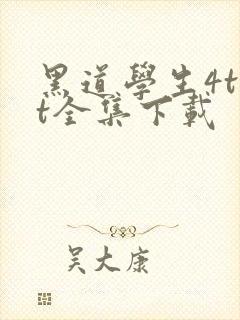 黑道學生4t
t全集下載
吴大康